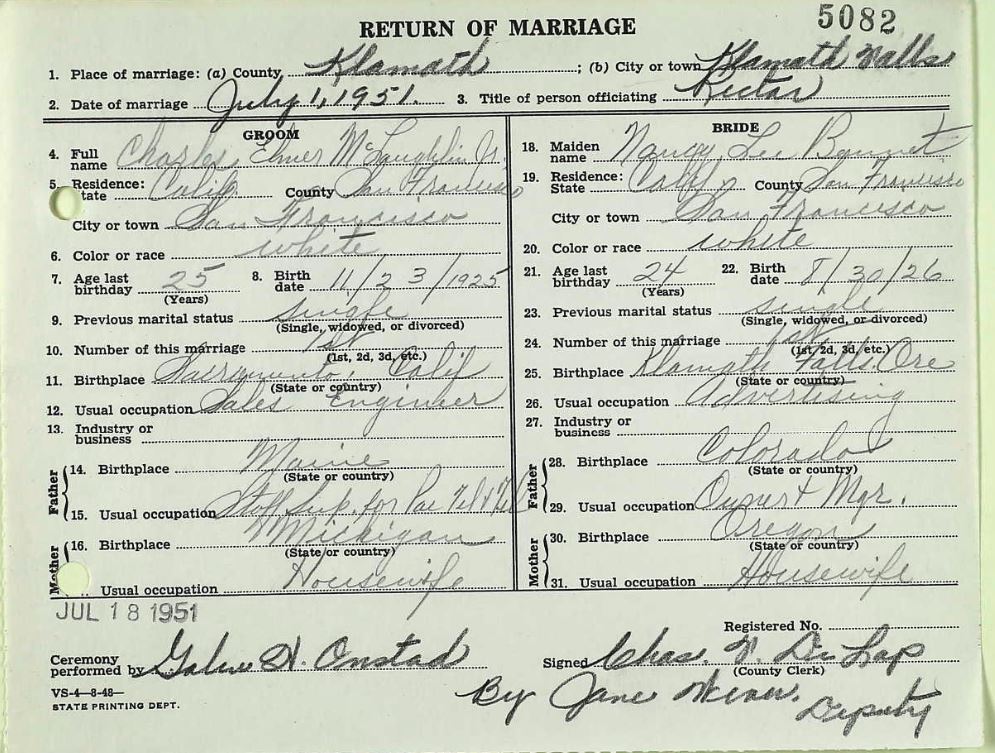 5082
RETURN OF MARRIAGE
1. Place of marriage: (a) County Klamath ; (b) City or town Klamath Falls
2. Date of marriage July 1, 1951. 3. Title of person officiating Rector
GROOM BRIDE
4. Full name Charles Elmer McLaughlin Jr. 18. Maiden name Nancy Lee Bennet
5. Residence: State Calif County San Francisco 19. Residence: State Calif County San Francisco
City or town San Francisco City or town San Francisco
6. Color or race white 20. Color or race white
7. Age last birthday 25 (Years) 8. Birth date 11/23/1925 21. Age last birthday 24 (Years) 22. Birth date 8/30/26
9. Previous marital status single (Single, widowed, or divorced) 23. Previous marital status single (Single, widowed, or divorced)
10. Number of this marriage 1st (1st, 2d, 3d, etc.) 24. Number of this marriage 1st (1st, 2d, 3d, etc.)
11. Birthplace Sacramento, Calif (State or country) 25. Birthplace Klamath Falls, Ore (State or country)
12. Usual occupation Sales Engineer 26. Usual occupation Advertising
13. Industry or business 27. Industry or business
Father 14. Birthplace Maine (State or country) Father 28. Birthplace Colorado (State or country)
15. Usual occupation Staff Sup. for Pac Tel & Tel 29. Usual occupation Owner & Mgr.
Mother 16. Birthplace Michigan (State or country) Mother 30. Birthplace Oregon (State or country)
Usual occupation Housewife 31. Usual occupation Housewife
JUL 18 1951
Registered No.
Ceremony performed by H. Onstad Signed Chas. F. De Lap
(County Clerk)
VS-4-8-48-
STATE PRINTING DEPT.
By Jane Deputy